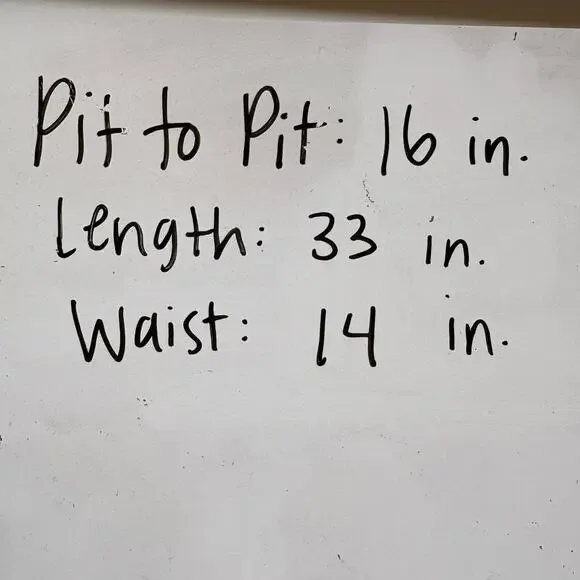 Pit to Pit: 16 in.
Length: 33 in.
Waist: 14 in.